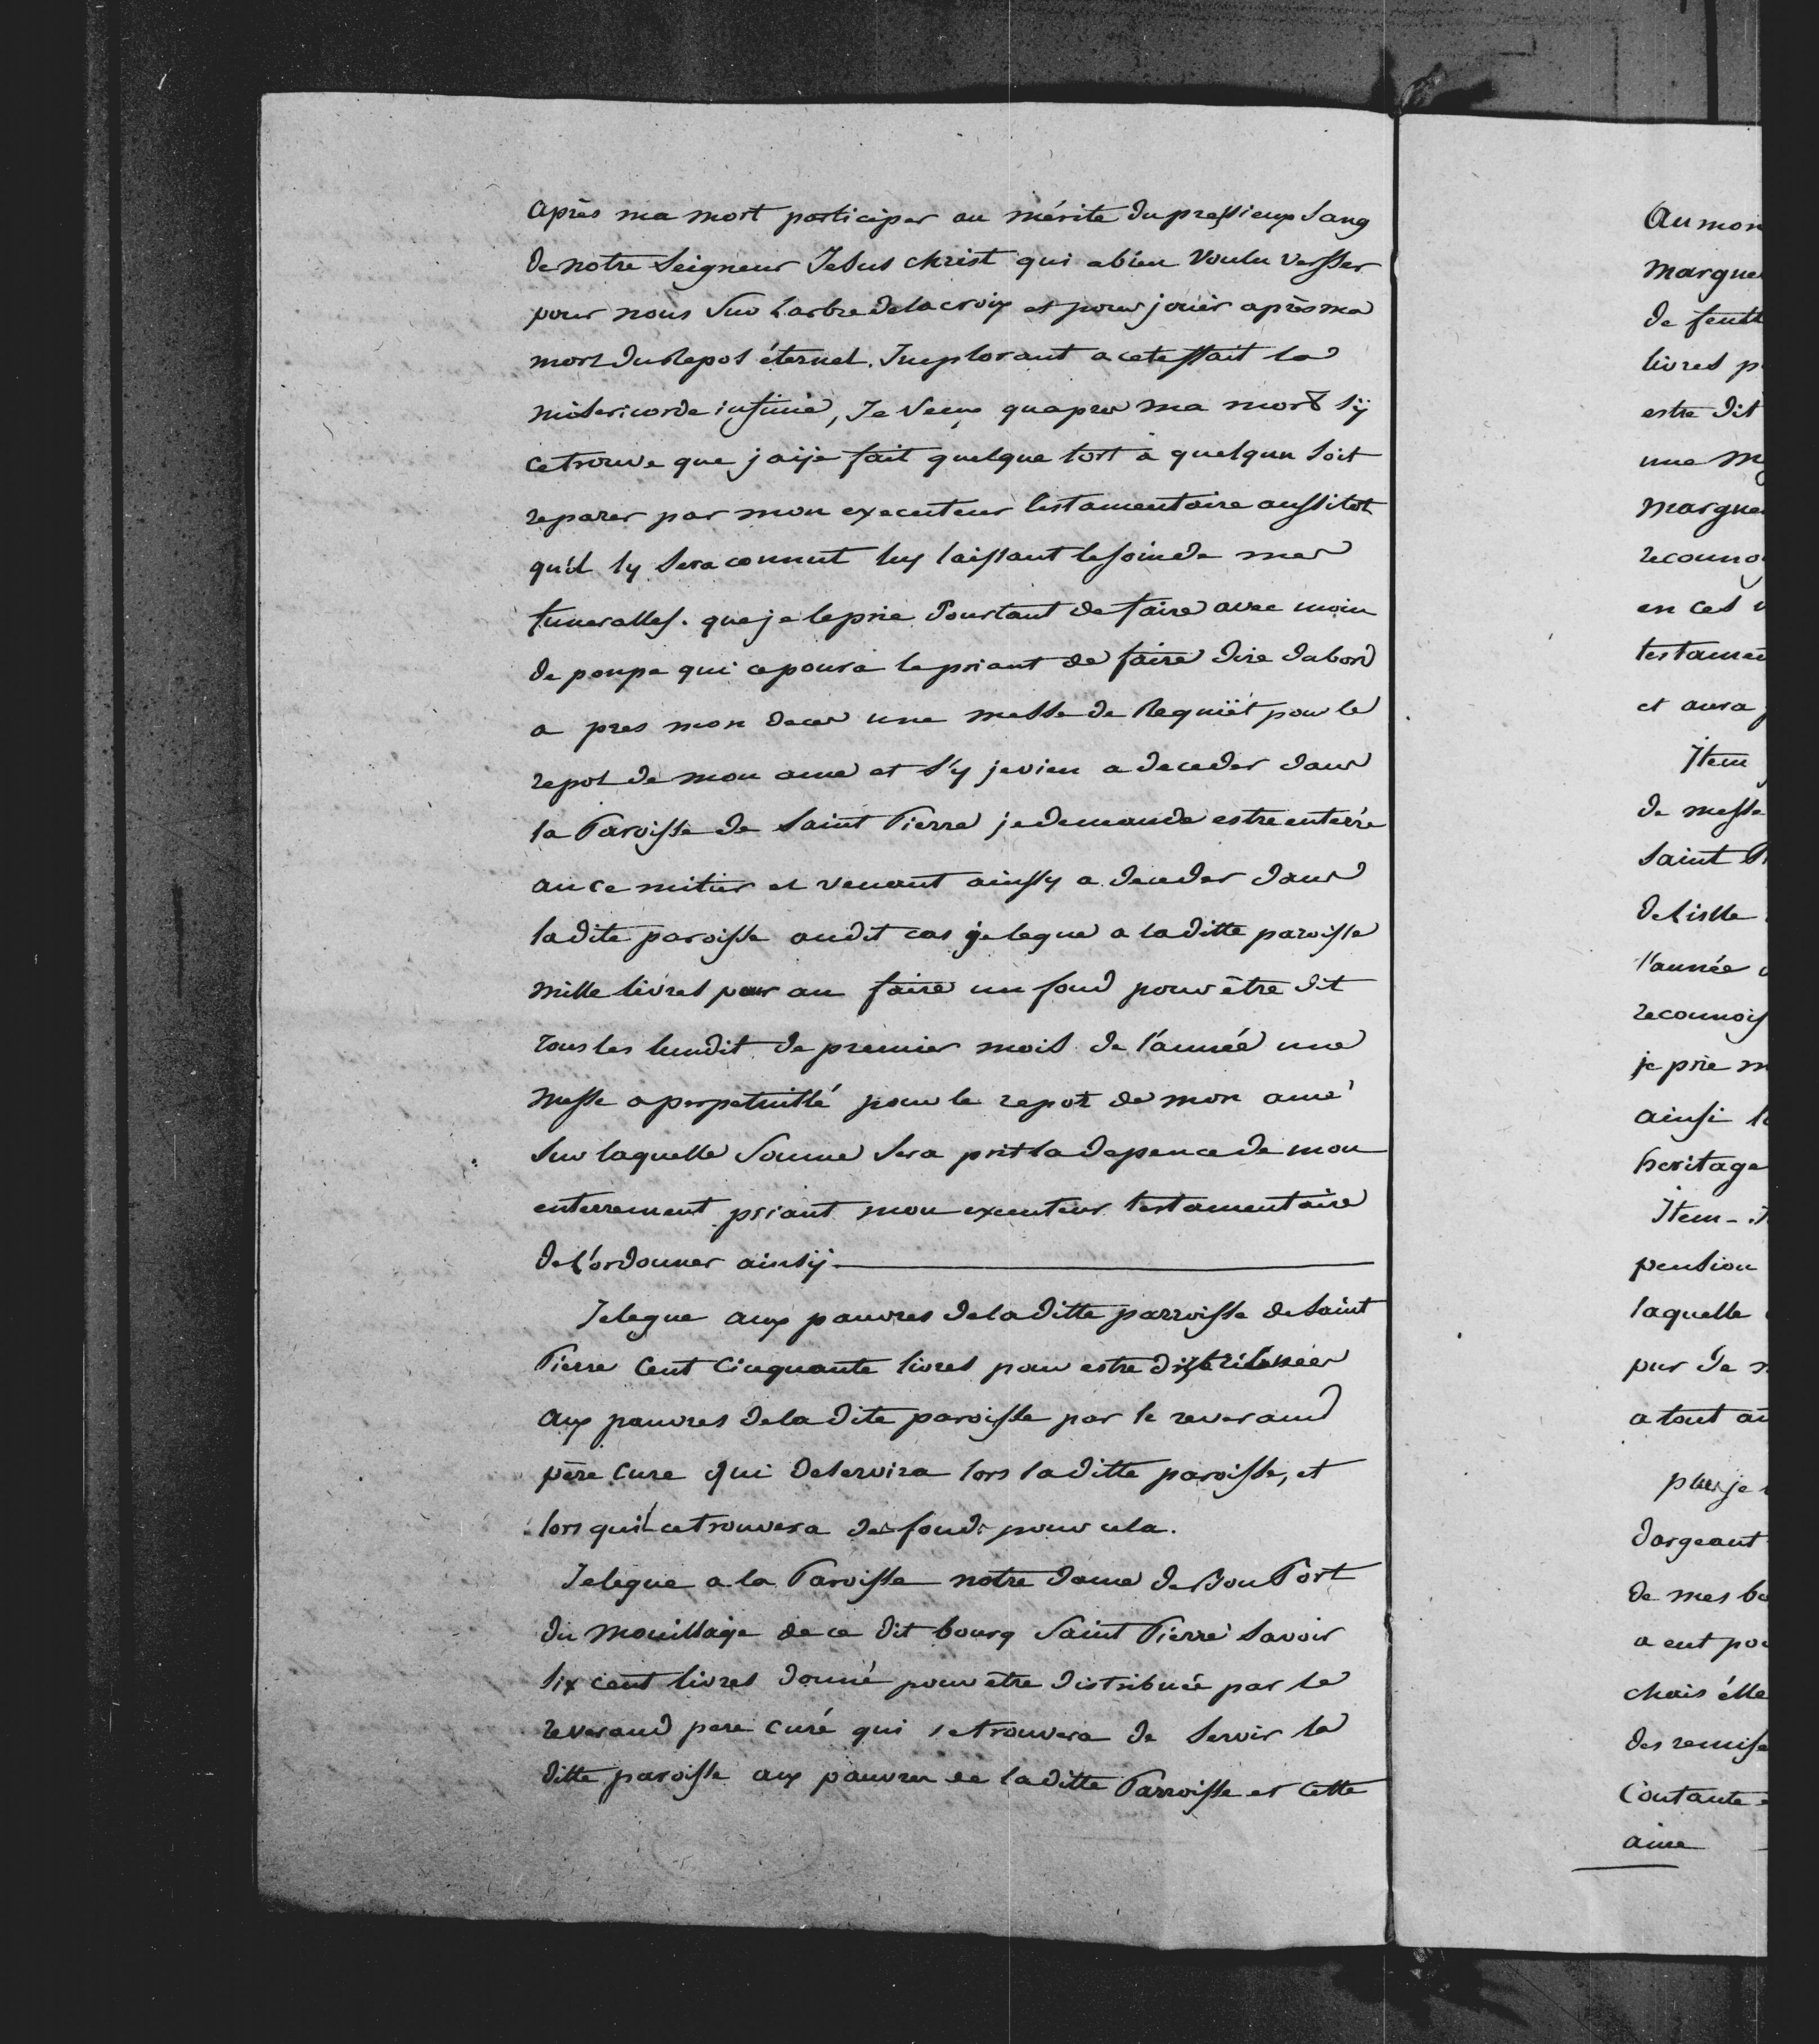 après ma mort participer au mérite du pressieux Sang
de notre Seigneur Jesus christ qui abien voulu versser
pour nous sur Larbre delacroix et pour jouir après ma
mort du Repos éternel. Implorant a cet effait la
misericorde infinie, Je veux quapres ma mort s'ÿ
cetrouve que jaije fait quelque tort à quelqun soit
reparer par mon executeur testamentaire aussitot
qu'il ly sera connut luy laissant lesoinde mes
funeralles. que je leprie Pourtant de faire avec moin
de poupe qui cepoura lepriant de faire dire dabord
a pres mon deces une messe de Requiët pour le
repot de mon ame et s'y jevien a deceder dans
la Paroisse de Saint Pierre jedemande estre enterré
au ce mitier et venant ainssy a deceder dans
ladite paroisse audit cas je legue a laditte paroisse
mille livres pour an faire un fond pour être dit
tous les lundit de premier mois de l'année une
messe a perpetuitté pour le repot de mon ame
sur laquelle somme sera prit la depence de mon
enterrement priant mon executeur testamentaire
de l'ordonner ainsÿ
Jelegue aux pauvres deladitte parroisse de Saint
Pierre Cent Cinquante livres pour estre distribuées
aux pauvres deladite paroisse par le reverand
père Cure qui deservira lors laditte paroisse, et
lors quil cetrouvera des fonds pour cela.
Jelegue a la Paroisse notre dame de Bon Port
du Mouillage de ce dit bourg Saint Pierre Savoir
Six cent livres donné pour être distribuée par le
reverand pere curé qui setrouvera de servir la
ditte paroisse aux pauvres de laditte Parroisse et Cette
Au mon
margue
de
livres p
estre dit
une
margue
reconno
en ces
testamen
et aura
Item
de messe
Saint P
Delisle
l'année
reconnois
je prie m
ainsi
heritage
Item
pension
laquelle
pur de
a tout au
plus je
dargeant
de mes b
a eut po
chais élle
des remise
Contante
aine